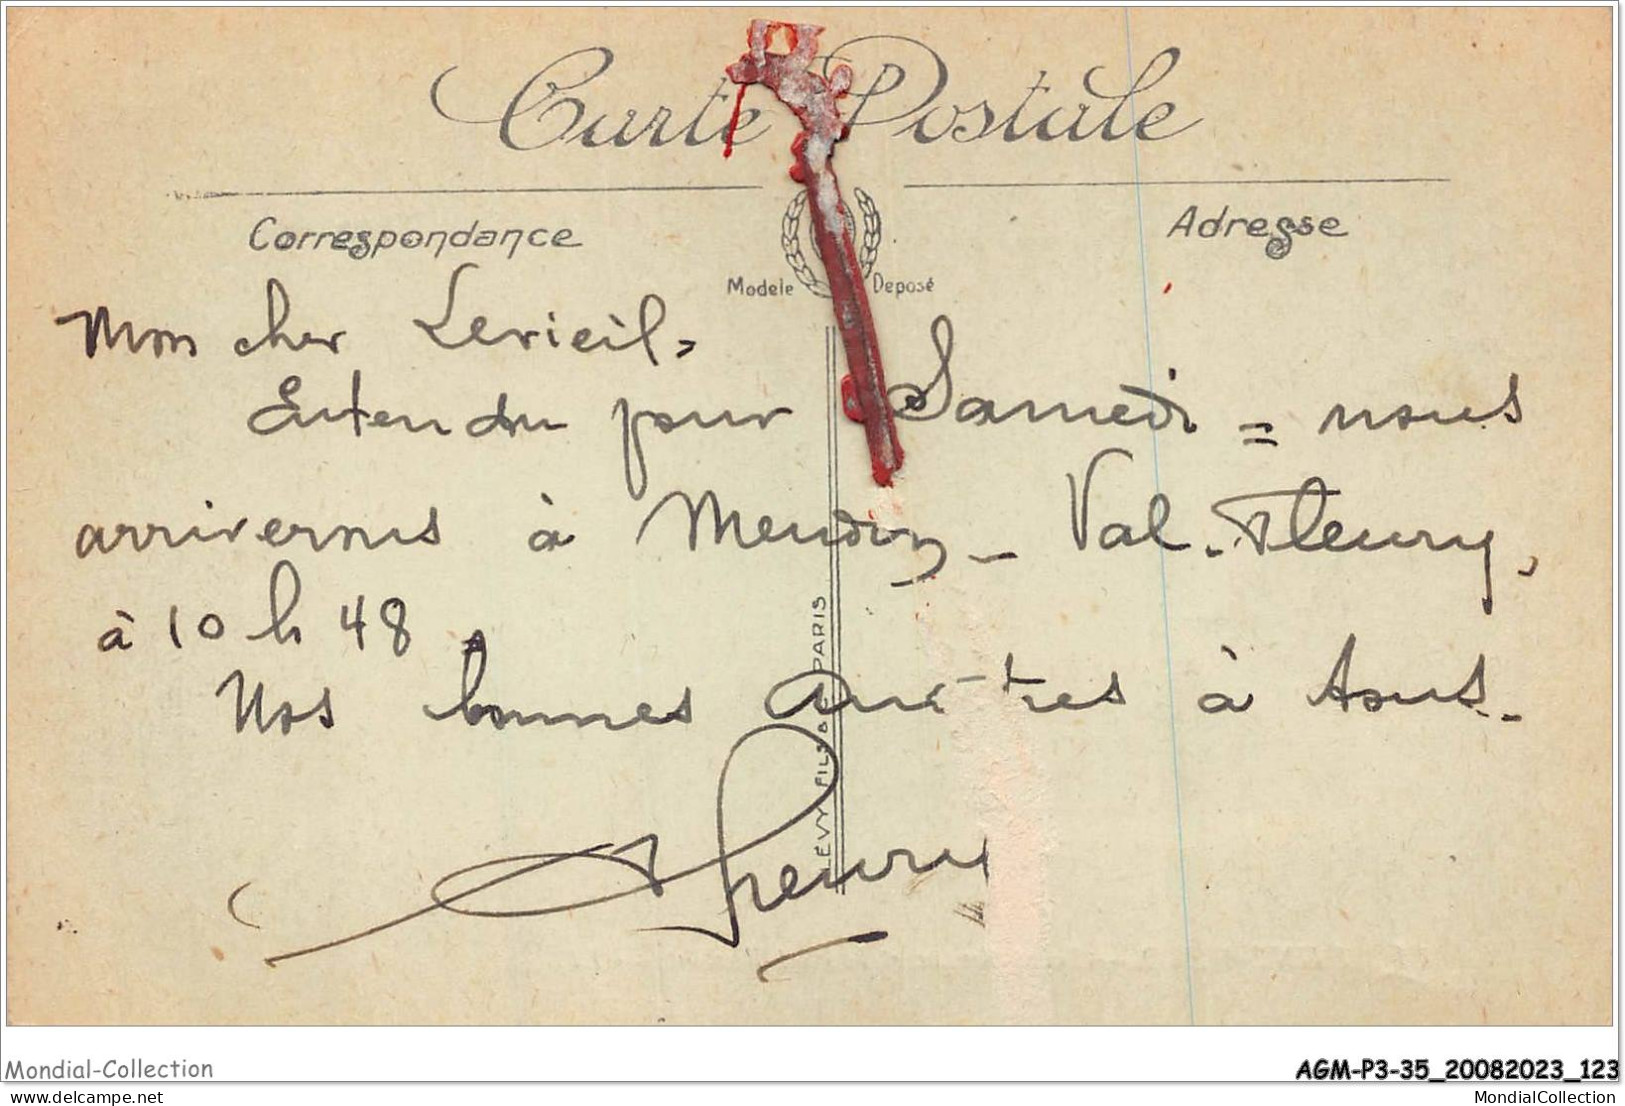 Carte Postale
Correspondance
Adresse
Modele Deposé
Mon cher Lerieil,
Entendu pour Samedi = nous
arriverons à Meudon - Val-Fleury,
à 10 h 48.
Nos bonnes amitiés à tous.
LÉVY FILS & PARIS
Mondial-Collection
AGM-P3-35_20082023_123
delcampe.net
MondialCollection